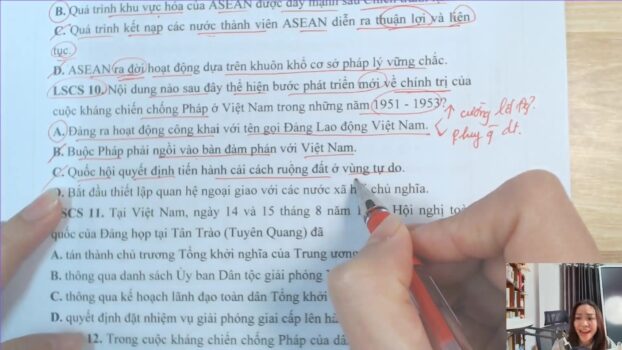 B. Quá trình khu vực hóa của ASEAN được đẩy mạnh sau Chiến
C. Quá trình kết nạp các nước thành viên ASEAN diễn ra thuận lợi và liên
tục.
D. ASEAN ra đời hoạt động dựa trên khuôn khổ cơ sở pháp lý vững chắc.
LSCS 10. Nội dung nào sau đây thể hiện bước phát triển mới về chính trị của
cuộc kháng chiến chống Pháp ở Việt Nam trong những năm 1951 - 1953?
A. Đảng ra hoạt động công khai với tên gọi Đảng Lao động Việt Nam.
B. Buộc Pháp phải ngồi vào bàn đàm phán với Việt Nam.
C. Quốc hội quyết định tiến hành cải cách ruộng đất ở vùng tự do.
D. Bắt đầu thiết lập quan hệ ngoại giao với các nước xã chủ nghĩa.
LSCS 11. Tại Việt Nam, ngày 14 và 15 tháng 8 năm Hội nghị
quốc của Đảng họp tại Tân Trào (Tuyên Quang) đã
A. tán thành chủ trương Tổng khởi nghĩa của Trung ương
B. thông qua danh sách Ủy ban Dân tộc giải phóng
C. thông qua kế hoạch lãnh đạo toàn dân Tổng khởi
D. quyết định đặt nhiệm vụ giải phóng giai cấp lên
12. Trong cuộc kháng chiến chống Pháp của